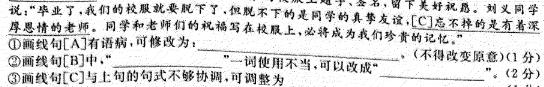 说，“毕业了，我们的校服就要脱下了，但脱不下的是同学的真挚友谊，[C]忘不掉的是有着深
厚恩情的老师。同学和老师们的祝福写在校服上，必将成为我们珍贵的记忆。”
①画线句[A]有语病，可修改为： 。(不得改变原意)(1分)
②画线句[B]中，“ ”一词使用不当，可以改成“ ”。(2分)
③画线句[C]与上句的句式不够协调，可调整为